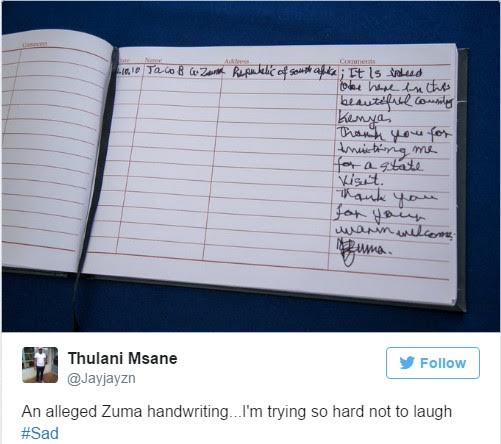 Comments
Date Name Address Comments
.10.10 Jacob G. Zuma Republic of south africa ; It Is indeed
to be here in this
beautiful country
Kenya,
Thank you for
inviting me
for a state
visit.
Thank you
for your
warm welcome.
Zuma.
Thulani Msane
@Jayjayzn
Follow
An alleged Zuma handwriting...I'm trying so hard not to laugh
#Sad